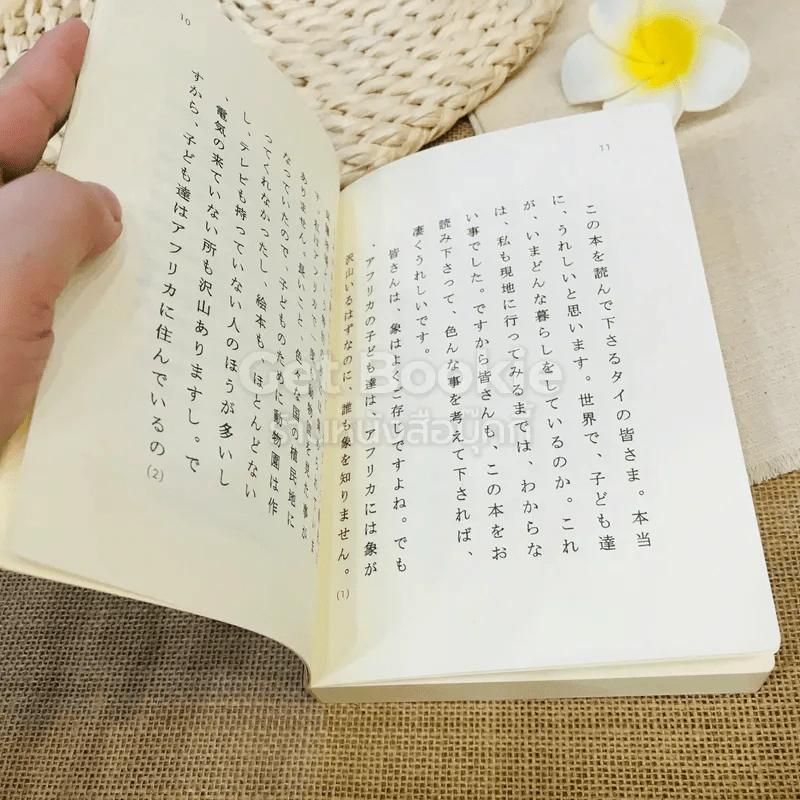 11
この本を読んで下さるタイの皆さま。本当
に、うれしいと思います。世界で、子ども達
が、いまどんな暮らしをしているのか。これ
は、私も現地に行ってみるまでは、わからな
い事でした。ですから皆さんも、この本をお
読み下さって、色んな事を考えて下されば、
凄くうれしいです。
皆さんは、象はよくご存じですよね。でも
、アフリカの子ども達は、アフリカには象が
沢山いるはずなのに、誰も象を知りません。
(1)
10
動物園を見た事が
ありません。長いこと、色々な国の植民地に
なっていたので、子どものために動物園は作
ってくれなかったし、絵本も ほとんどない
し、テレビも持っていない人のほうが多いし
、電気の来ていない所も沢山ありますし。で
すから、子ども達はアフリカに住んでいるの
(2)
Get Bookie
ร้านหนังสือบุ๊กกี้